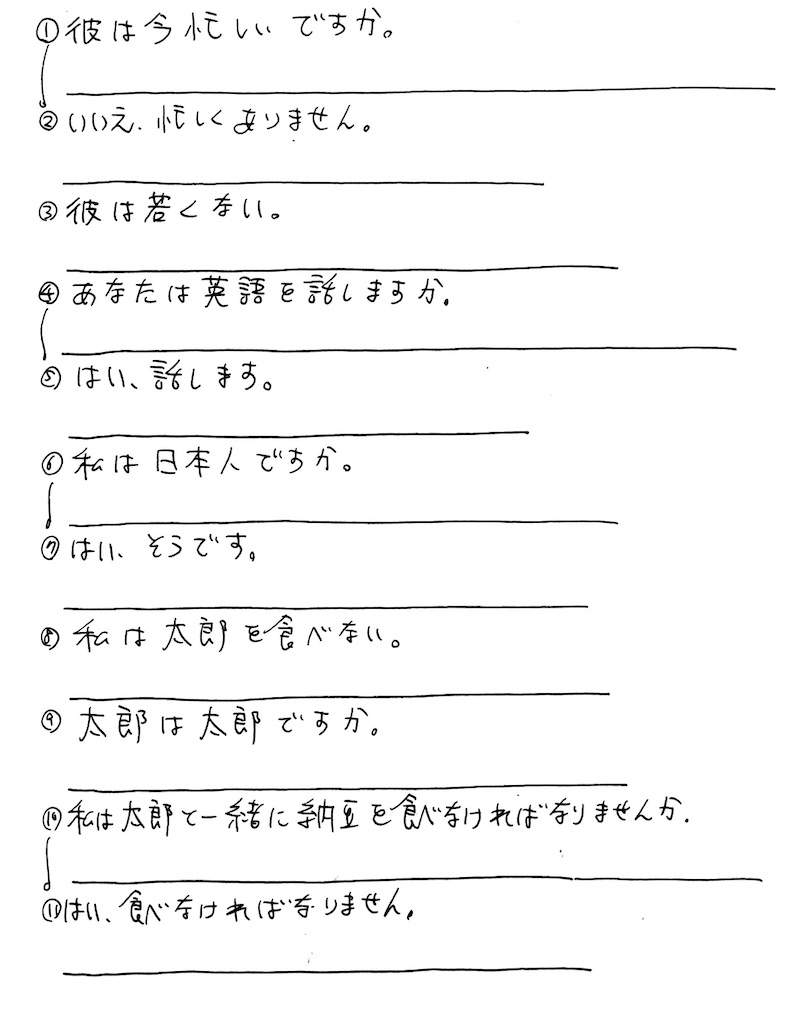 ①彼は今忙しいですか。
②いいえ、忙しくありません。
③彼は若くない。
④あなたは英語を話しますか。
⑤はい、話します。
⑥私は日本人ですか。
⑦はい、そうです。
⑧私は太郎を食べない。
⑨太郎は太郎ですか。
⑩私は太郎と一緒に納豆を食べなければなりませんか.
⑪はい、食べなければなりません.